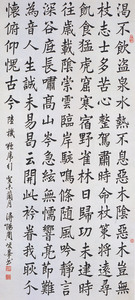 渴不飲盜泉水熱不息惡木陰惡木豈無
枝志士多苦心整駕肅時命杖策將遠尋
飢食猛虎窟寒宿野雀林日歸功未建時
往歲載陰崇雲臨岸駭鳴條隨風吟靜言
深谷底長嘯高山岑急絃無懦響亮節難
為音人生誠未易曷云開此衿眷我耿介
懷俯仰愧古今 陸機 猛虎行